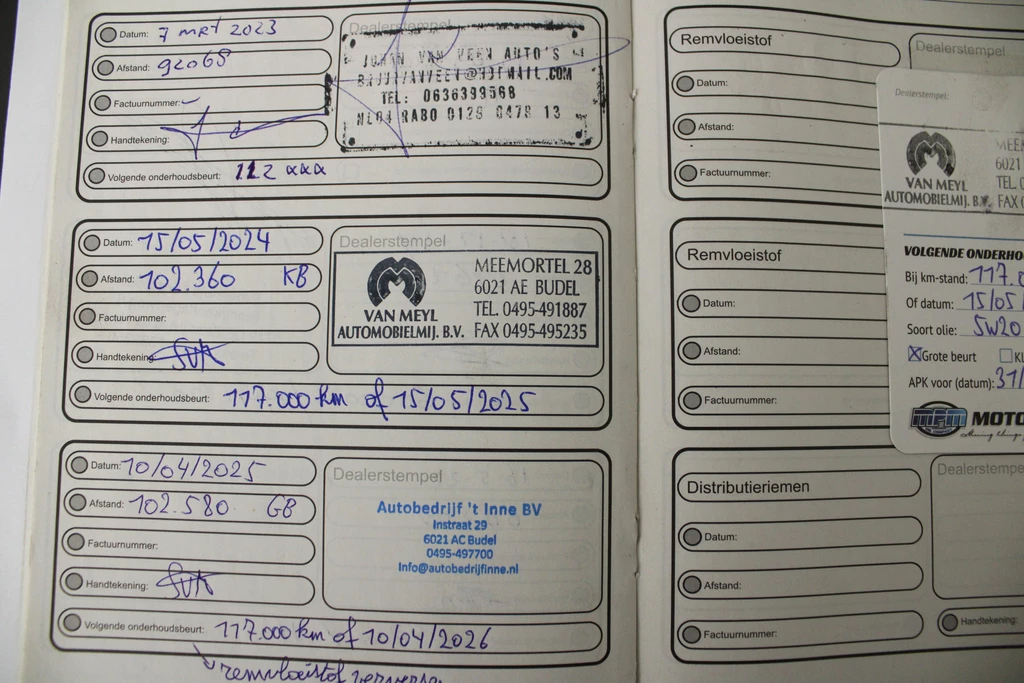 Datum: 7 mrt 2023
Afstand: 92068
Factuurnummer:
Handtekening:
Volgende onderhoudsbeurt: 112 xxx
Dealerstempel
JOHAN VAN VEEN AUTO'S
TEL: 0636399568
RABO 0129 0478 13
Datum: 15/05/2024
Afstand: 102.360 KB
Factuurnummer:
Handtekening
Volgende onderhoudsbeurt: 117.000 km of 15/05/2025
Dealerstempel
VAN MEYL
AUTOMOBIELMIJ. B.V.
MEEMORTEL 28
6021 AE BUDEL
TEL. 0495-491887
FAX 0495-495235
Datum: 10/04/2025
Afstand: 102.580 GB
Factuurnummer:
Handtekening:
Volgende onderhoudsbeurt: 117.000 km of 10/04/2026
remvloeistof
Dealerstempel
Autobedrijf 't Inne BV
Instraat 29
6021 AC Budel
0495-497700
Info@autobedrijfinne.nl
Remvloeistof
Datum:
Afstand:
Factuurnummer:
Dealerstempel
Remvloeistof
Datum:
Afstand:
Factuurnummer:
Distributieriemen
Datum:
Afstand:
Factuurnummer:
Dealerstempe
Handtekening:
Dealerstempel:
VAN MEYL
AUTOMOBIELMIJ. B.V.
MEE
6021
TEL.
FAX
VOLGENDE ONDERHO
Bij km-stand: 117.0
Of datum: 15/05/
Soort olie: 5W20
Grote beurt
APK voor (datum): 31/
MPM MOTO